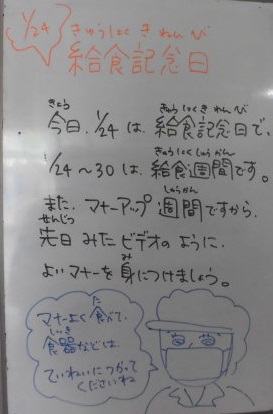 1/24
きゅうしょく きねんび
給食記念日
きょう きゅうしょくきねんび
今日、1/24 は、給食記念日で、
きゅうしょくしゅうかん
1/24~30は、給食週間です。
しゅうかん
また、マナーアップ週間ですから、
せんじつ
先日 みた ビデオのように、
み
よいマナーを身につけましょう。
た
マナーよく食べて、
しょっき
食器などは、
ていねいにつかって
くださいね